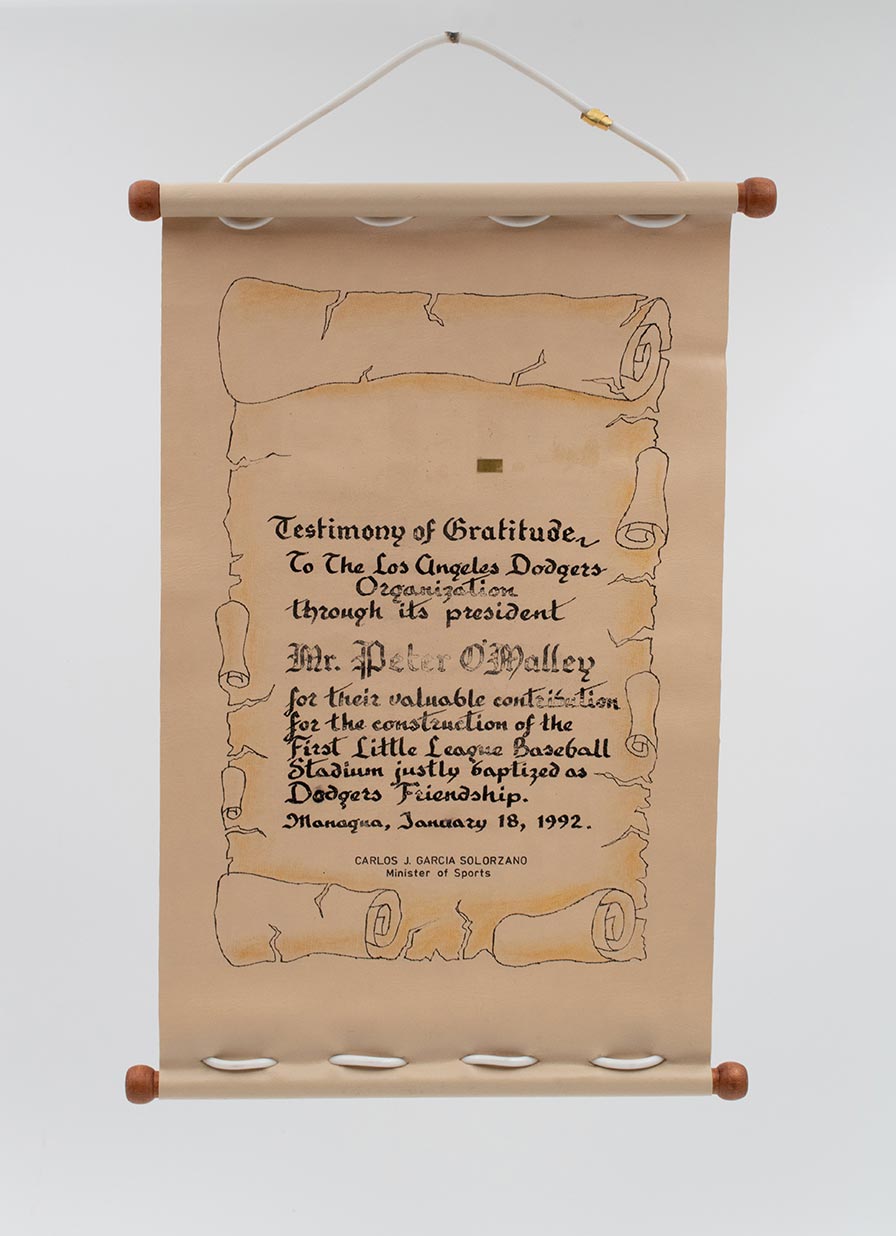 Testimony of Gratitude
To The Los Angeles Dodgers
Organization
through its president
Mr. Peter O'Malley
for their valuable contribution
for the construction of the
First Little League Baseball
Stadium justly baptized as
Dodgers Friendship.
Managua, January 18, 1992.
CARLOS J. GARCIA SOLORZANO
Minister of Sports